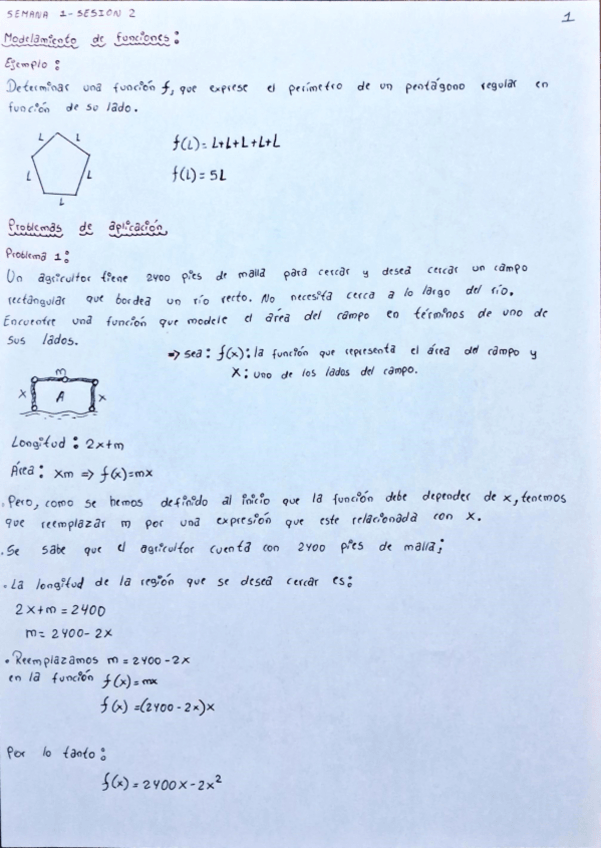 SEMANA 1-SESION 2
1
Modelamiento de funciones:
Ejemplo:
Determinar una función f, que exprese el perímetro de un pentágono regular en
función de su lado.
L L
L L
L
f(L)= L+L+L+L+L
f(L)= 5L
Problemas de aplicación.
Problema 1:
Un agricultor tiene 2400 pies de malla para cercar y desea cercar un campo
rectangular que bordea un río recto. No necesita cerca a lo largo del río.
Encuentre una función que modele el área del campo en términos de uno de
sus lados.
=> sea: f(x): la función que representa el área del campo y
x: uno de los lados del campo.
m
x A x
Longitud: 2x+m
Área: xm => f(x)=mx
. Pero, como se hemos definido al inicio que la función debe depender de x, tenemos
que reemplazar m por una expresión que este relacionada con x.
. Se sabe que el agricultor cuenta con 2400 pies de malla;
. La longitud de la región que se desea cercar es:
2x+m = 2400
m= 2400-2x
• Reemplazamos m = 2400-2x
en la función f(x)=mx
f(x) =(2400-2x)x
Por lo tanto:
f(x)= 2400x-2x²